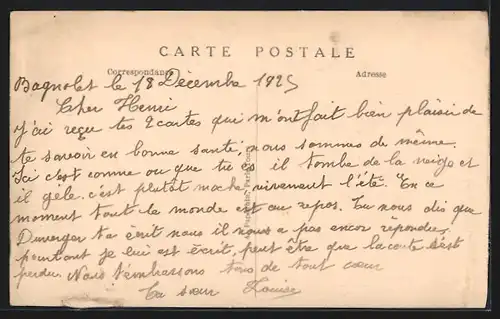 CARTE POSTALE
Correspondance Adresse
Bagnolet le 18 Décembre 1925
Cher Henri
J'ai reçue tes 2 cartes qui m'ont fait bien plaisir de
te savoir en bonne santé, nous sommes de même.
Ici c'est comme ou que tu es il tombe de la neige et
il gèle. c'est plutot moche vivement l'été. En ce
moment tout le monde est au repos. Tu nous dis que
Duverger t'a écrit nous il nous a pas encor répondre,
pourtant je lui est écrit, peut être que la carte s'est
perdu. Nous t'embrassons tous de tout cœur
Ta sœur Louise